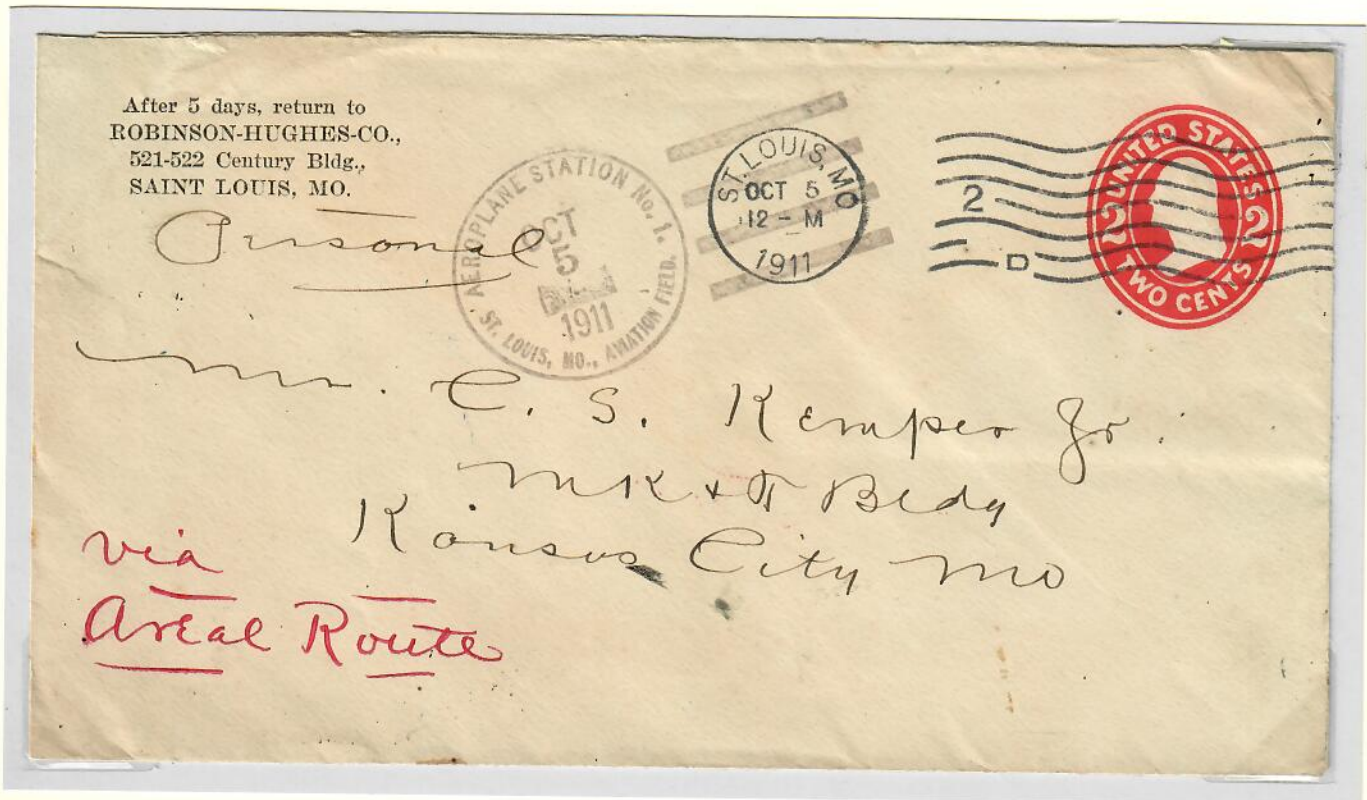 After 5 days, return to
ROBINSON-HUGHES-CO.,
521-522 Century Bldg.,
SAINT LOUIS, MO.
Personal
AEROPLANE STATION No. 1.
OCT
5
1911
ST. LOUIS, MO., AVIATION FIELD.
ST. LOUIS, MO
OCT 5
12 - M
1911
2
D
UNITED STATES
2 2
TWO CENTS
Mr. C. S. Kemper Jr.
MK & T Bldg
Kansas City Mo
via
Areal Route